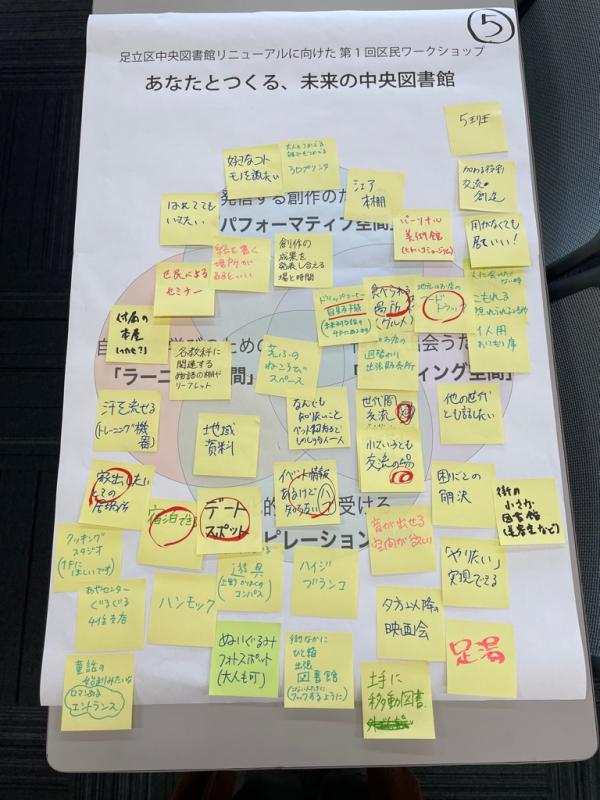 5
足立区中央図書館リニューアルに向けた 第1回区民ワークショップ
あなたとつくる、未来の中央図書館
5班
好きなコト
モノを話したい
大人もつかえる
3Dプリンタ
シェア
本棚
交流・
創造
発信する創作のた
パフォーマティブ空間
はれてても
いきたい
パーソナル
美術館
用がなくても
居てもいい!
区民による
セミナー
絵を書く
場所が
創作の
成果を
発表し合える
場と時間
ドリップコーヒー
食べられる
場所
(グルメ)
地元のお店の
フード
トラック
こもれる
1人用
おこもり席
付属の
本屋
自
びのための
「ラーニ
間」
名教科に
関連する
物語の棚や
リーフレット
芝ふの
ねころべる
スペース
お店の
週替わり
出張販売所
出会うた
ティング空間」
汗を流せる
(トレーニング機
器)
地域
資料
なんでも
知りたいこと
世代間
交流
他のせかい
とも話したい
小さい子とも
交流の場
家出したい
ときの
居場所
宿泊できる
デート
スポット
イベント情報
あるけど
知らない人
受ける
ピレーション
音が出せる
空間が欲しい
困りごとの
解決
街の
小さな
図書館
クッキング
スタジオ
(1Fに
ほしいです)
あやセンター
ぐるぐる
4倍支店
ハンモック
遊具
コンパス)
ハイジ
ブランコ
夕方以降の
映画会
「やりたい」
実現できる
足湯
童話の
始まりみたいな
ロマンある
エントランス
ぬいぐるみ
フォトスポット
(大人も可)
街なかに
ひと箱
出張
図書館
フックするように)
土手に
移動図書